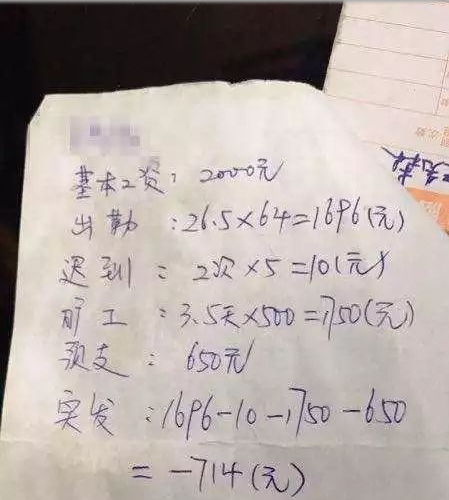 基本工资: 2000元
出勤 :26.5×64=1696(元)
迟到 : 2次×5=10(元)
旷工 : 3.5天×500=1750(元)
预支 : 650元
实发 :1696-10-1750-650
= -714(元)